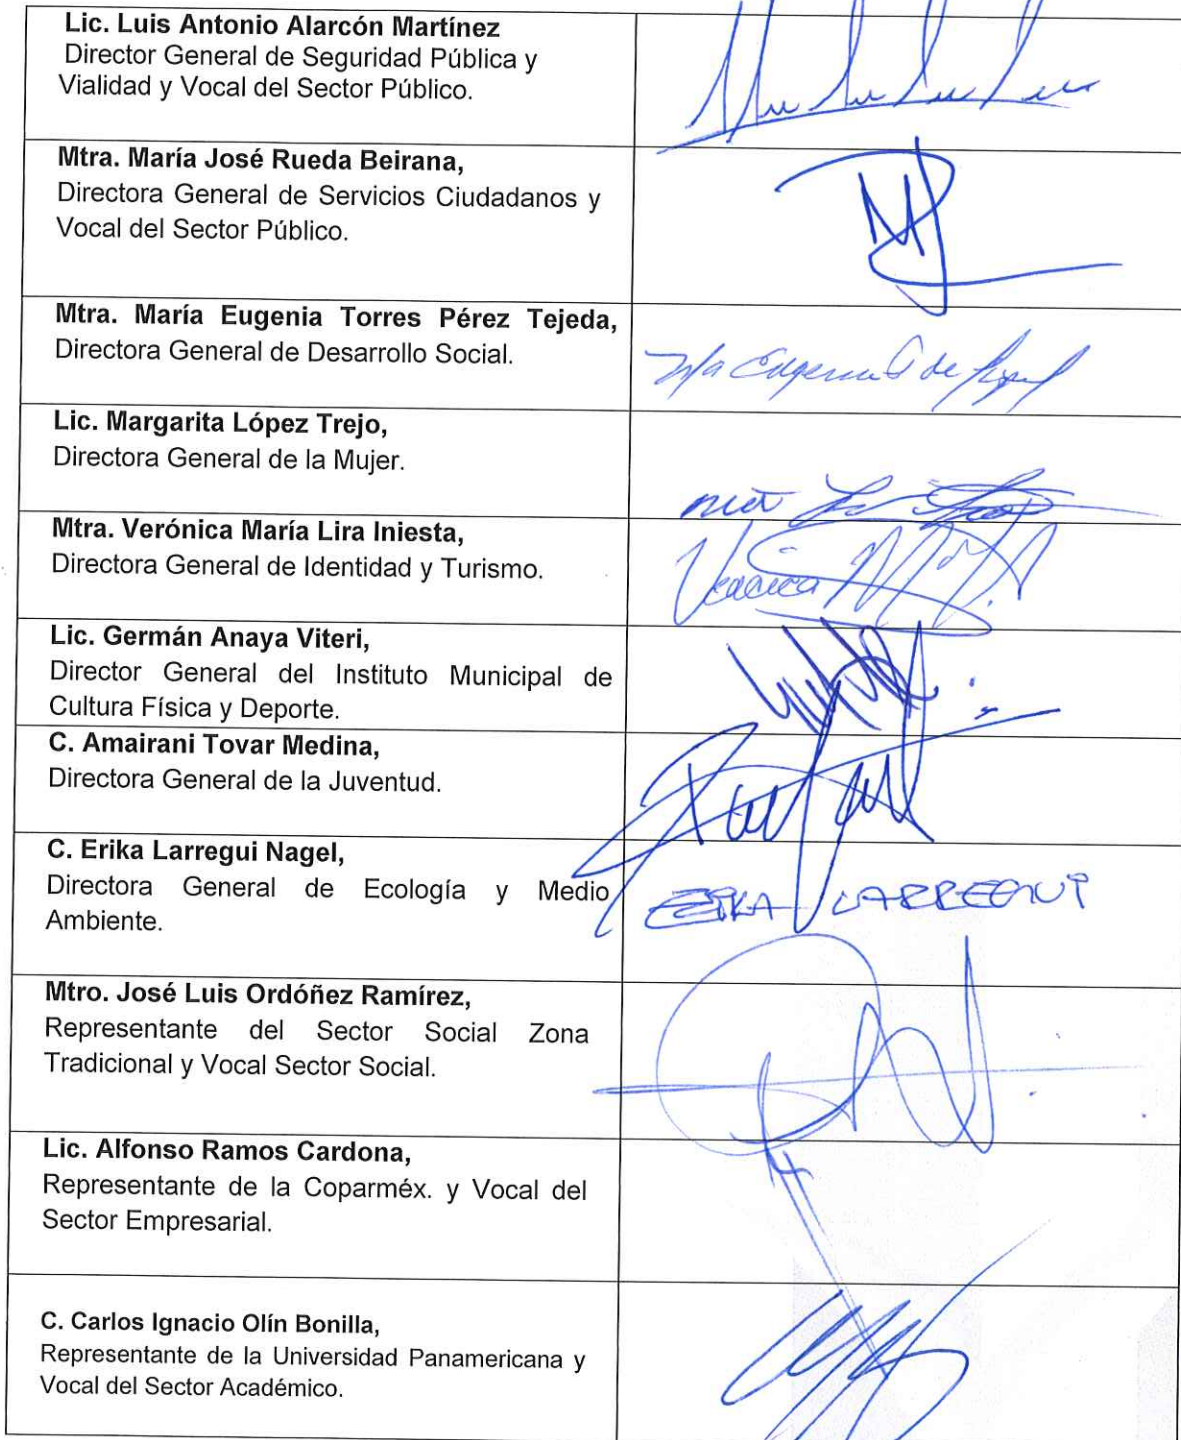 Lic. Luis Antonio Alarcón Martínez
Director General de Seguridad Pública y
Vialidad y Vocal del Sector Público.
Mtra. María José Rueda Beirana,
Directora General de Servicios Ciudadanos y
Vocal del Sector Público.
Mtra. María Eugenia Torres Pérez Tejeda,
Directora General de Desarrollo Social.
Ma Eugenia T de
Lic. Margarita López Trejo,
Directora General de la Mujer.
Mtra. Verónica María Lira Iniesta,
Directora General de Identidad y Turismo.
Veronica
Lic. Germán Anaya Viteri,
Director General del Instituto Municipal de
Cultura Física y Deporte.
C. Amairani Tovar Medina,
Directora General de la Juventud.
C. Erika Larregui Nagel,
Directora General de Ecología y Medio
Ambiente.
ERIKA LARREGUI
Mtro. José Luis Ordóñez Ramírez,
Representante del Sector Social Zona
Tradicional y Vocal Sector Social.
Lic. Alfonso Ramos Cardona,
Representante de la Coparméx. y Vocal del
Sector Empresarial.
C. Carlos Ignacio Olín Bonilla,
Representante de la Universidad Panamericana y
Vocal del Sector Académico.